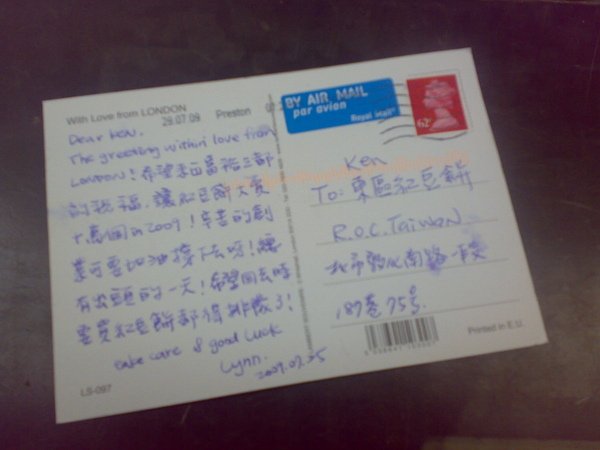 With Love from LONDON
29.07.09 Preston
Dear Ken,
The greeting within love from
London! 希望來自富裕之都
的祝福,讓紅豆餅大賣
十萬個in 2009! 辛苦的創
業可要加油撐下去呀!總
有出頭的一天!希望回去時
要買紅豆餅都得排隊了!
take care & good luck
Lynn.
2009.07.25
LS-097
BY AIR MAIL
par avion
Royal Mail
62
Ken
To: 東區紅豆餅
R.O.C. Taiwan
北市敦化南路一段
187巷75號
Printed in E.U.